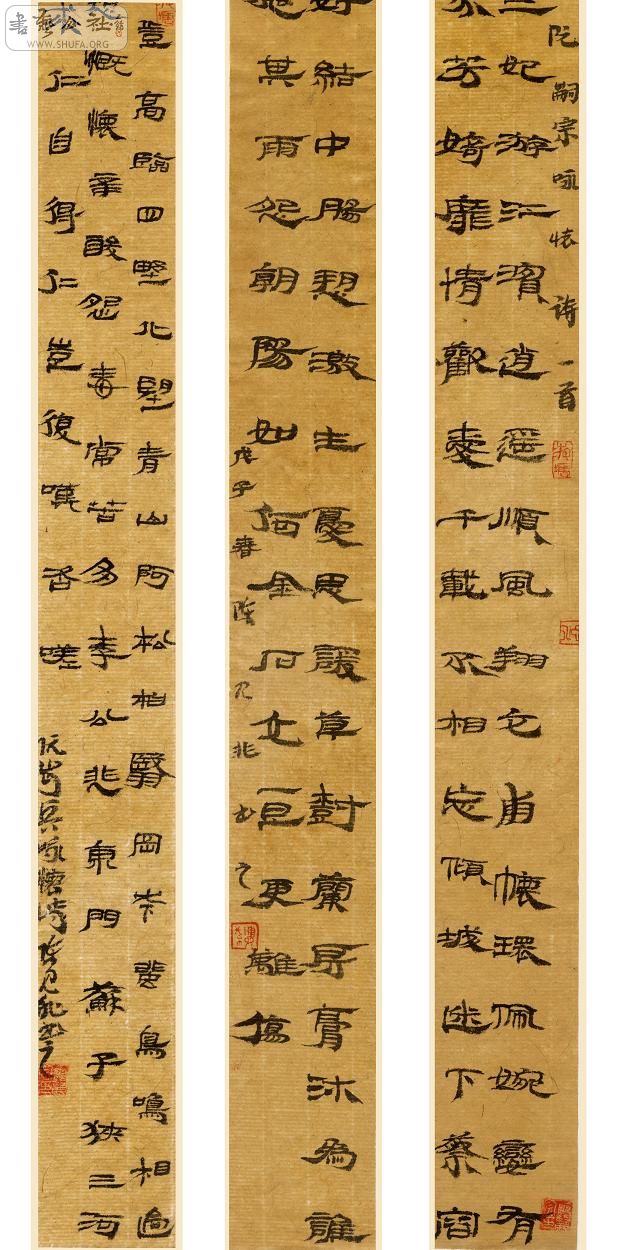 阮嗣宗咏怀诗一首
二妃游江濱逍遥順風翔交甫懷環佩婉孌有
芳猗靡情歡愛千載不相忘傾城迷下蔡容
好結中腸感激生憂思諼草樹蘭房膏沐為誰
施其雨怨朝陽如何金石交一旦更離傷
戊子春陈见非书之
登高臨四野北望青山阿松柏翳岡岑飛鳥鳴相過
慨懷辛酸怨毒常苦多李公悲東門蘇子狹三河
仁自得仁豈復嘆咨嗟
阮步兵咏懷詩陈见非书
WWW.SHUFA.ORG